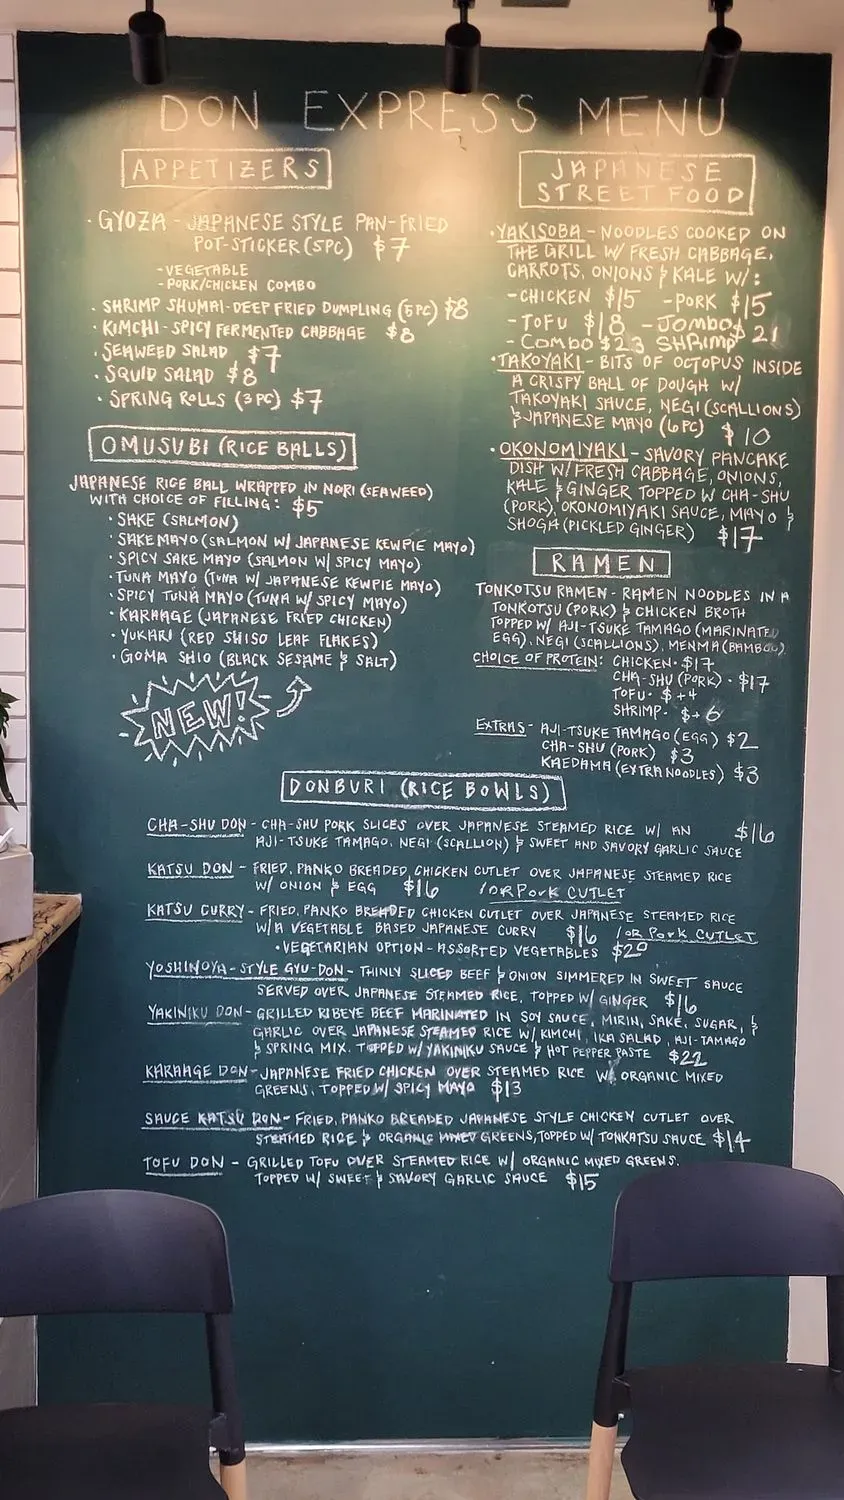 DON EXPRESS MENU
APPETIZERS
• GYOZA - JAPANESE STYLE PAN-FRIED
POT-STICKER (5PC) $7
- VEGETABLE
- PORK/CHICKEN COMBO
• SHRIMP SHUMAI - DEEP FRIED DUMPLING (5PC) $8
• KIMCHI - SPICY FERMENTED CABBAGE $8
• SEAWEED SALAD $7
• SQUID SALAD $8
• SPRING ROLLS (3PC) $7
OMUSUBI (RICE BALLS)
JAPANESE RICE BALL WRAPPED IN NORI (SEAWEED)
WITH CHOICE OF FILLING: $5
• SAKE (SALMON)
• SAKE MAYO (SALMON W/ JAPANESE KEWPIE MAYO)
• SPICY SAKE MAYO (SALMON W/ SPICY MAYO)
• TUNA MAYO (TUNA W/ JAPANESE KEWPIE MAYO)
• SPICY TUNA MAYO (TUNA W/ SPICY MAYO)
• KARAAGE (JAPANESE FRIED CHICKEN)
• YUKARI (RED SHISO LEAF FLAKES)
• GOMA SHIO (BLACK SESAME & SALT)
NEW!
JAPANESE
STREET FOOD
• YAKISOBA - NOODLES COOKED ON
THE GRILL W/ FRESH CABBAGE,
CARROTS, ONIONS & KALE W/:
- CHICKEN $15 - PORK $15
- TOFU $18 - Jombo $21
- Combo $23 SHRimp
• TAKOYAKI - BITS OF OCTOPUS INSIDE
A CRISPY BALL OF DOUGH W/
TAKOYAKI SAUCE, NEGI (SCALLIONS)
& JAPANESE MAYO (6PC) $10
• OKONOMIYAKI - SAVORY PANCAKE
DISH W/ FRESH CABBAGE, ONIONS,
KALE & GINGER TOPPED W CHA-SHU
(PORK), OKONOMIYAKI SAUCE, MAYO &
SHOGA (PICKLED GINGER) $17
RAMEN
TONKOTSU RAMEN - RAMEN NOODLES IN A
TONKOTSU (PORK) & CHICKEN BROTH
TOPPED W/ AJI-TSUKE TAMAGO (MARINATED
EGG), NEGI (SCALLIONS), MENMA (BAMBOO)
CHOICE OF PROTEIN: CHICKEN • $17
CHA-SHU (PORK) • $17
TOFU • $+4
SHRIMP • $+6
EXTRAS - AJI-TSUKE TAMAGO (EGG) $2
CHA-SHU (PORK) $3
KAEDAMA (EXTRA NOODLES) $3
DONBURI (RICE BOWLS)
CHA-SHU DON - CHA-SHU PORK SLICES OVER JAPANESE STEAMED RICE W/ AN $16
AJI-TSUKE TAMAGO, NEGI (SCALLION) & SWEET AND SAVORY GARLIC SAUCE
KATSU DON - FRIED, PANKO BREADED, CHICKEN CUTLET OVER JAPANESE STEAMED RICE
W/ ONION & EGG $16 /OR PORK CUTLET
KATSU CURRY - FRIED, PANKO BREADED CHICKEN CUTLET OVER JAPANESE STEAMED RICE
W/ A VEGETABLE BASED JAPANESE CURRY $16 /OR PORK CUTLET
• VEGETARIAN OPTION - ASSORTED VEGETABLES $20
YOSHINOYA-STYLE GYU-DON - THINLY SLICED BEEF & ONION SIMMERED IN SWEET SAUCE
SERVED OVER JAPANESE STEAMED RICE, TOPPED W/ GINGER $16
YAKINIKU DON - GRILLED RIBEYE BEEF MARINATED IN SOY SAUCE, MIRIN, SAKE, SUGAR, &
GARLIC OVER JAPANESE STEAMED RICE W/ KIMCHI, IKA SALAD, AJI-TAMAGO
& SPRING MIX. TOPPED W/ YAKINIKU SAUCE & HOT PEPPER PASTE $22
KARAAGE DON - JAPANESE FRIED CHICKEN OVER STEAMED RICE W/ ORGANIC MIXED
GREENS, TOPPED W/ SPICY MAYO $13
SAUCE KATSU DON - FRIED, PANKO BREADED JAPANESE STYLE CHICKEN CUTLET OVER
STEAMED RICE & ORGANIC MIXED GREENS, TOPPED W/ TONKATSU SAUCE $14
TOFU DON - GRILLED TOFU OVER STEAMED RICE W/ ORGANIC MIXED GREENS.
TOPPED W/ SWEET & SAVORY GARLIC SAUCE $15